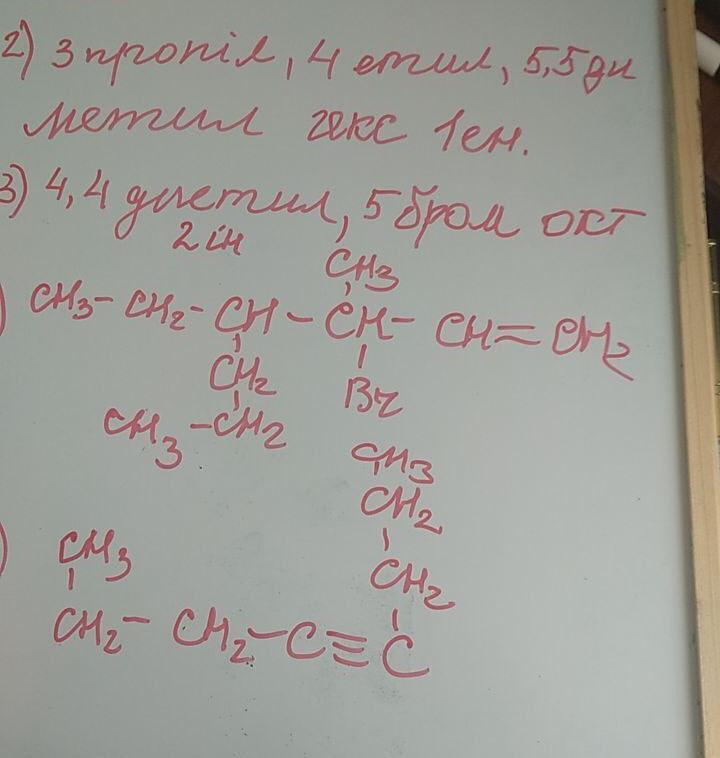 2) 3 пропіл, 4 етил, 5,5 ди
метил гекс 1 ен.
3) 4,4 диетил, 5 бром окт
2 ін
CH3
) CH3 - CH2 - CH - CH - CH = CH2
CH2 Br
CH3 - CH2
CH3
CH2
) CH3
CH2
CH2 - CH2 - C ≡ C